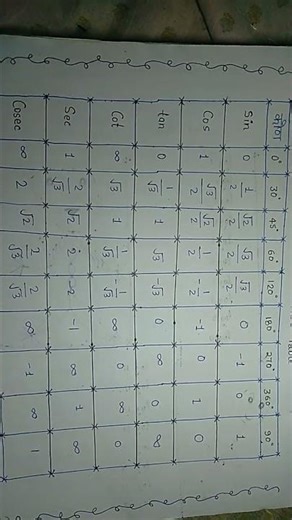 कोण 0° 30° 45° 60° 120° 180° 270° 360° 90°
Sin 0 1/2 √2/2 √3/2 √3/2 0 -1 0 1
Cos 1 √3/2 √2/2 1/2 -1/2 -1 0 1 0
tan 0 1/√3 1 √3 -√3 0 ∞ 0 ∞
Cot ∞ √3 1 1/√3 -1/√3 ∞ 0 ∞ 0
Sec 1 2/√3 √2 2 -2 -1 ∞ 1 ∞
Cosec ∞ 2 √2 2/√3 2/√3 ∞ -1 ∞ 1